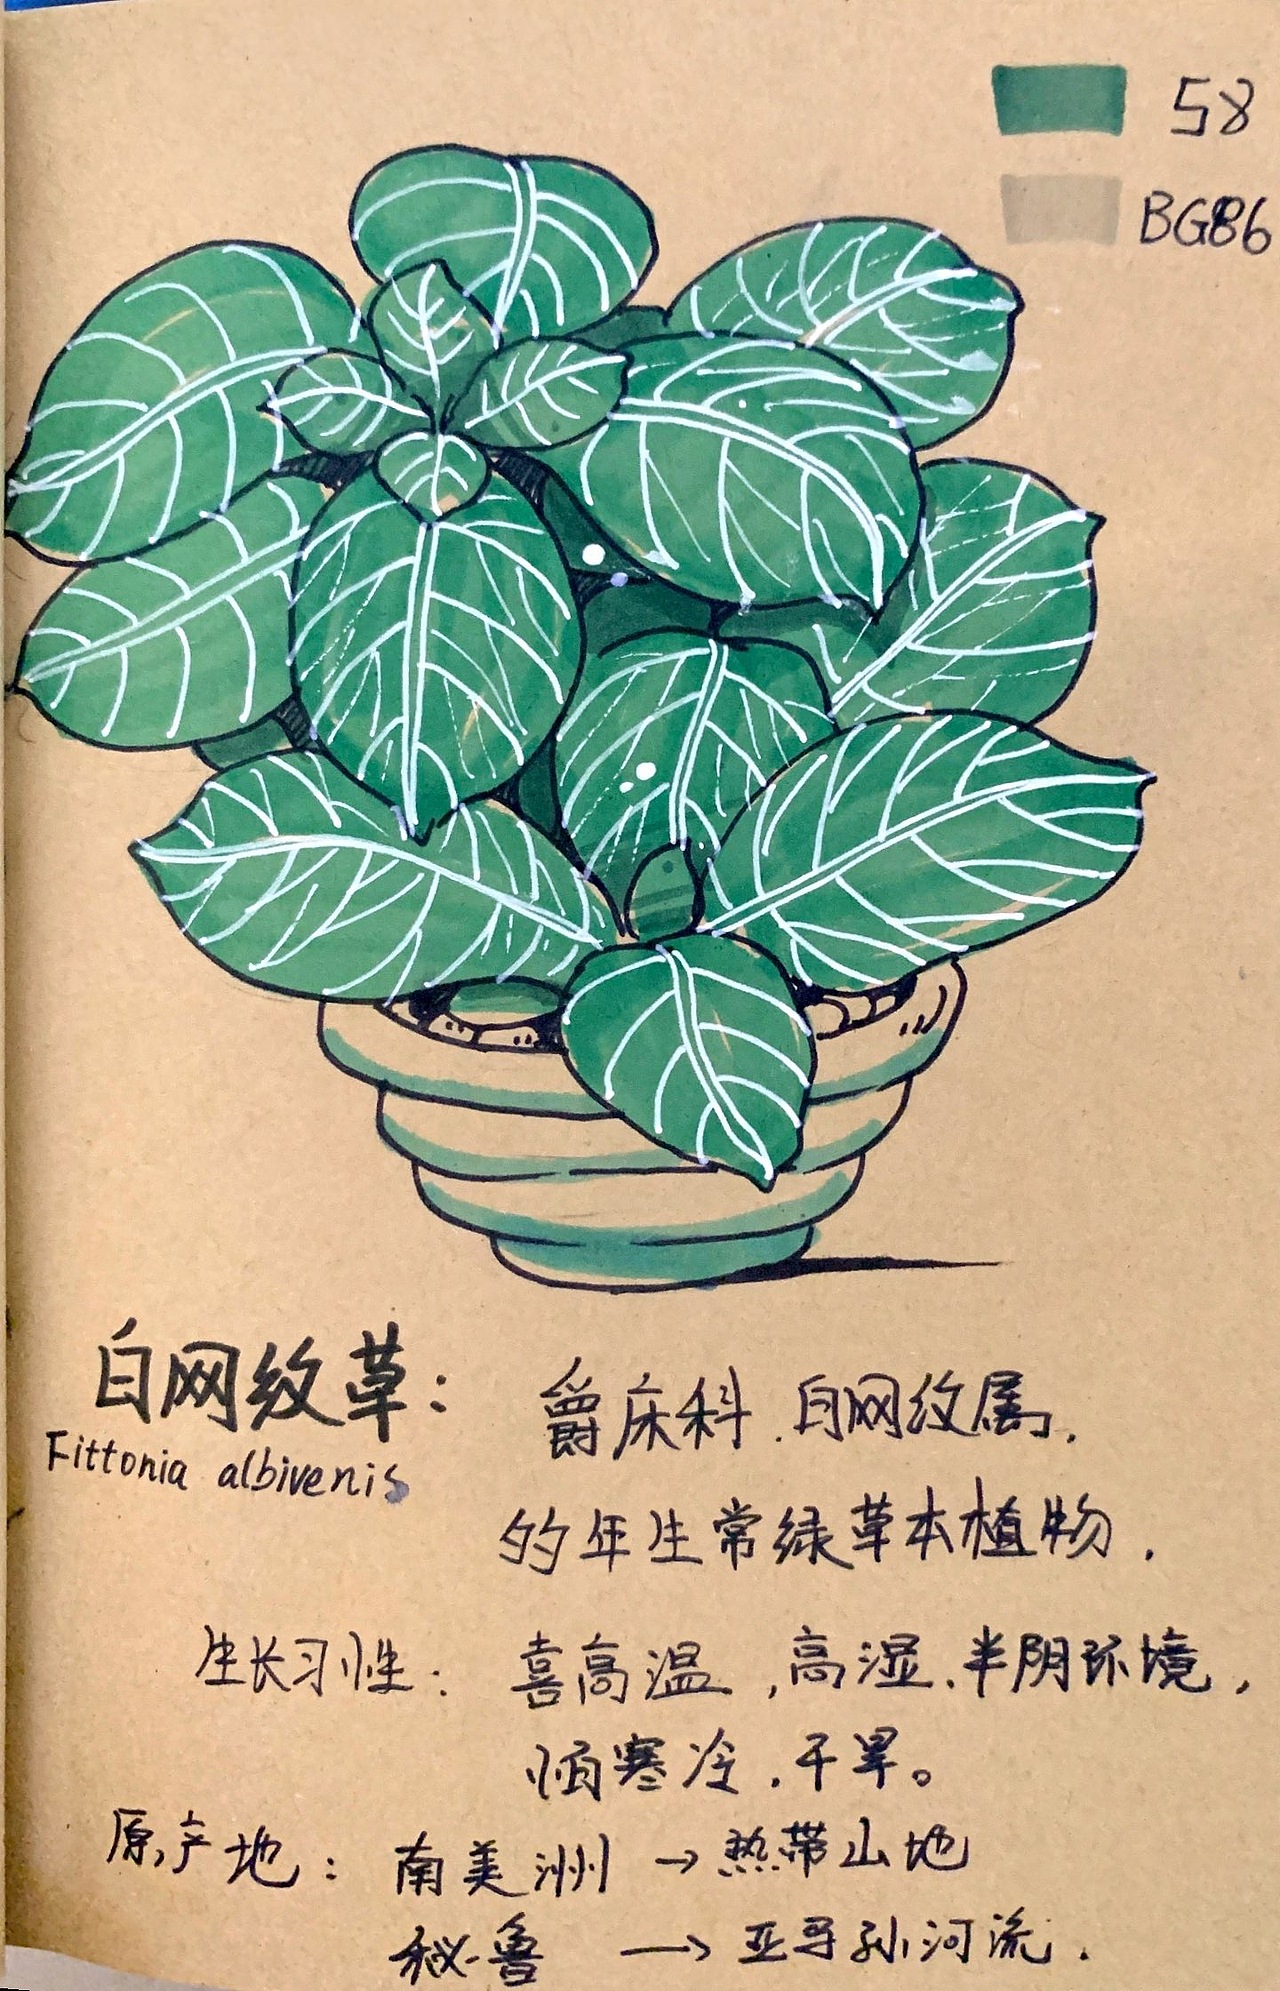 58
BG86
白网纹草:
Fittonia albivenis
爵床科.白网纹属.
的年生常绿草本植物.
生长习性:喜高温,高湿、半阴环境,
怕寒冷.干旱。
原产地:南美洲→热带山地
秘鲁→亚马孙河流.